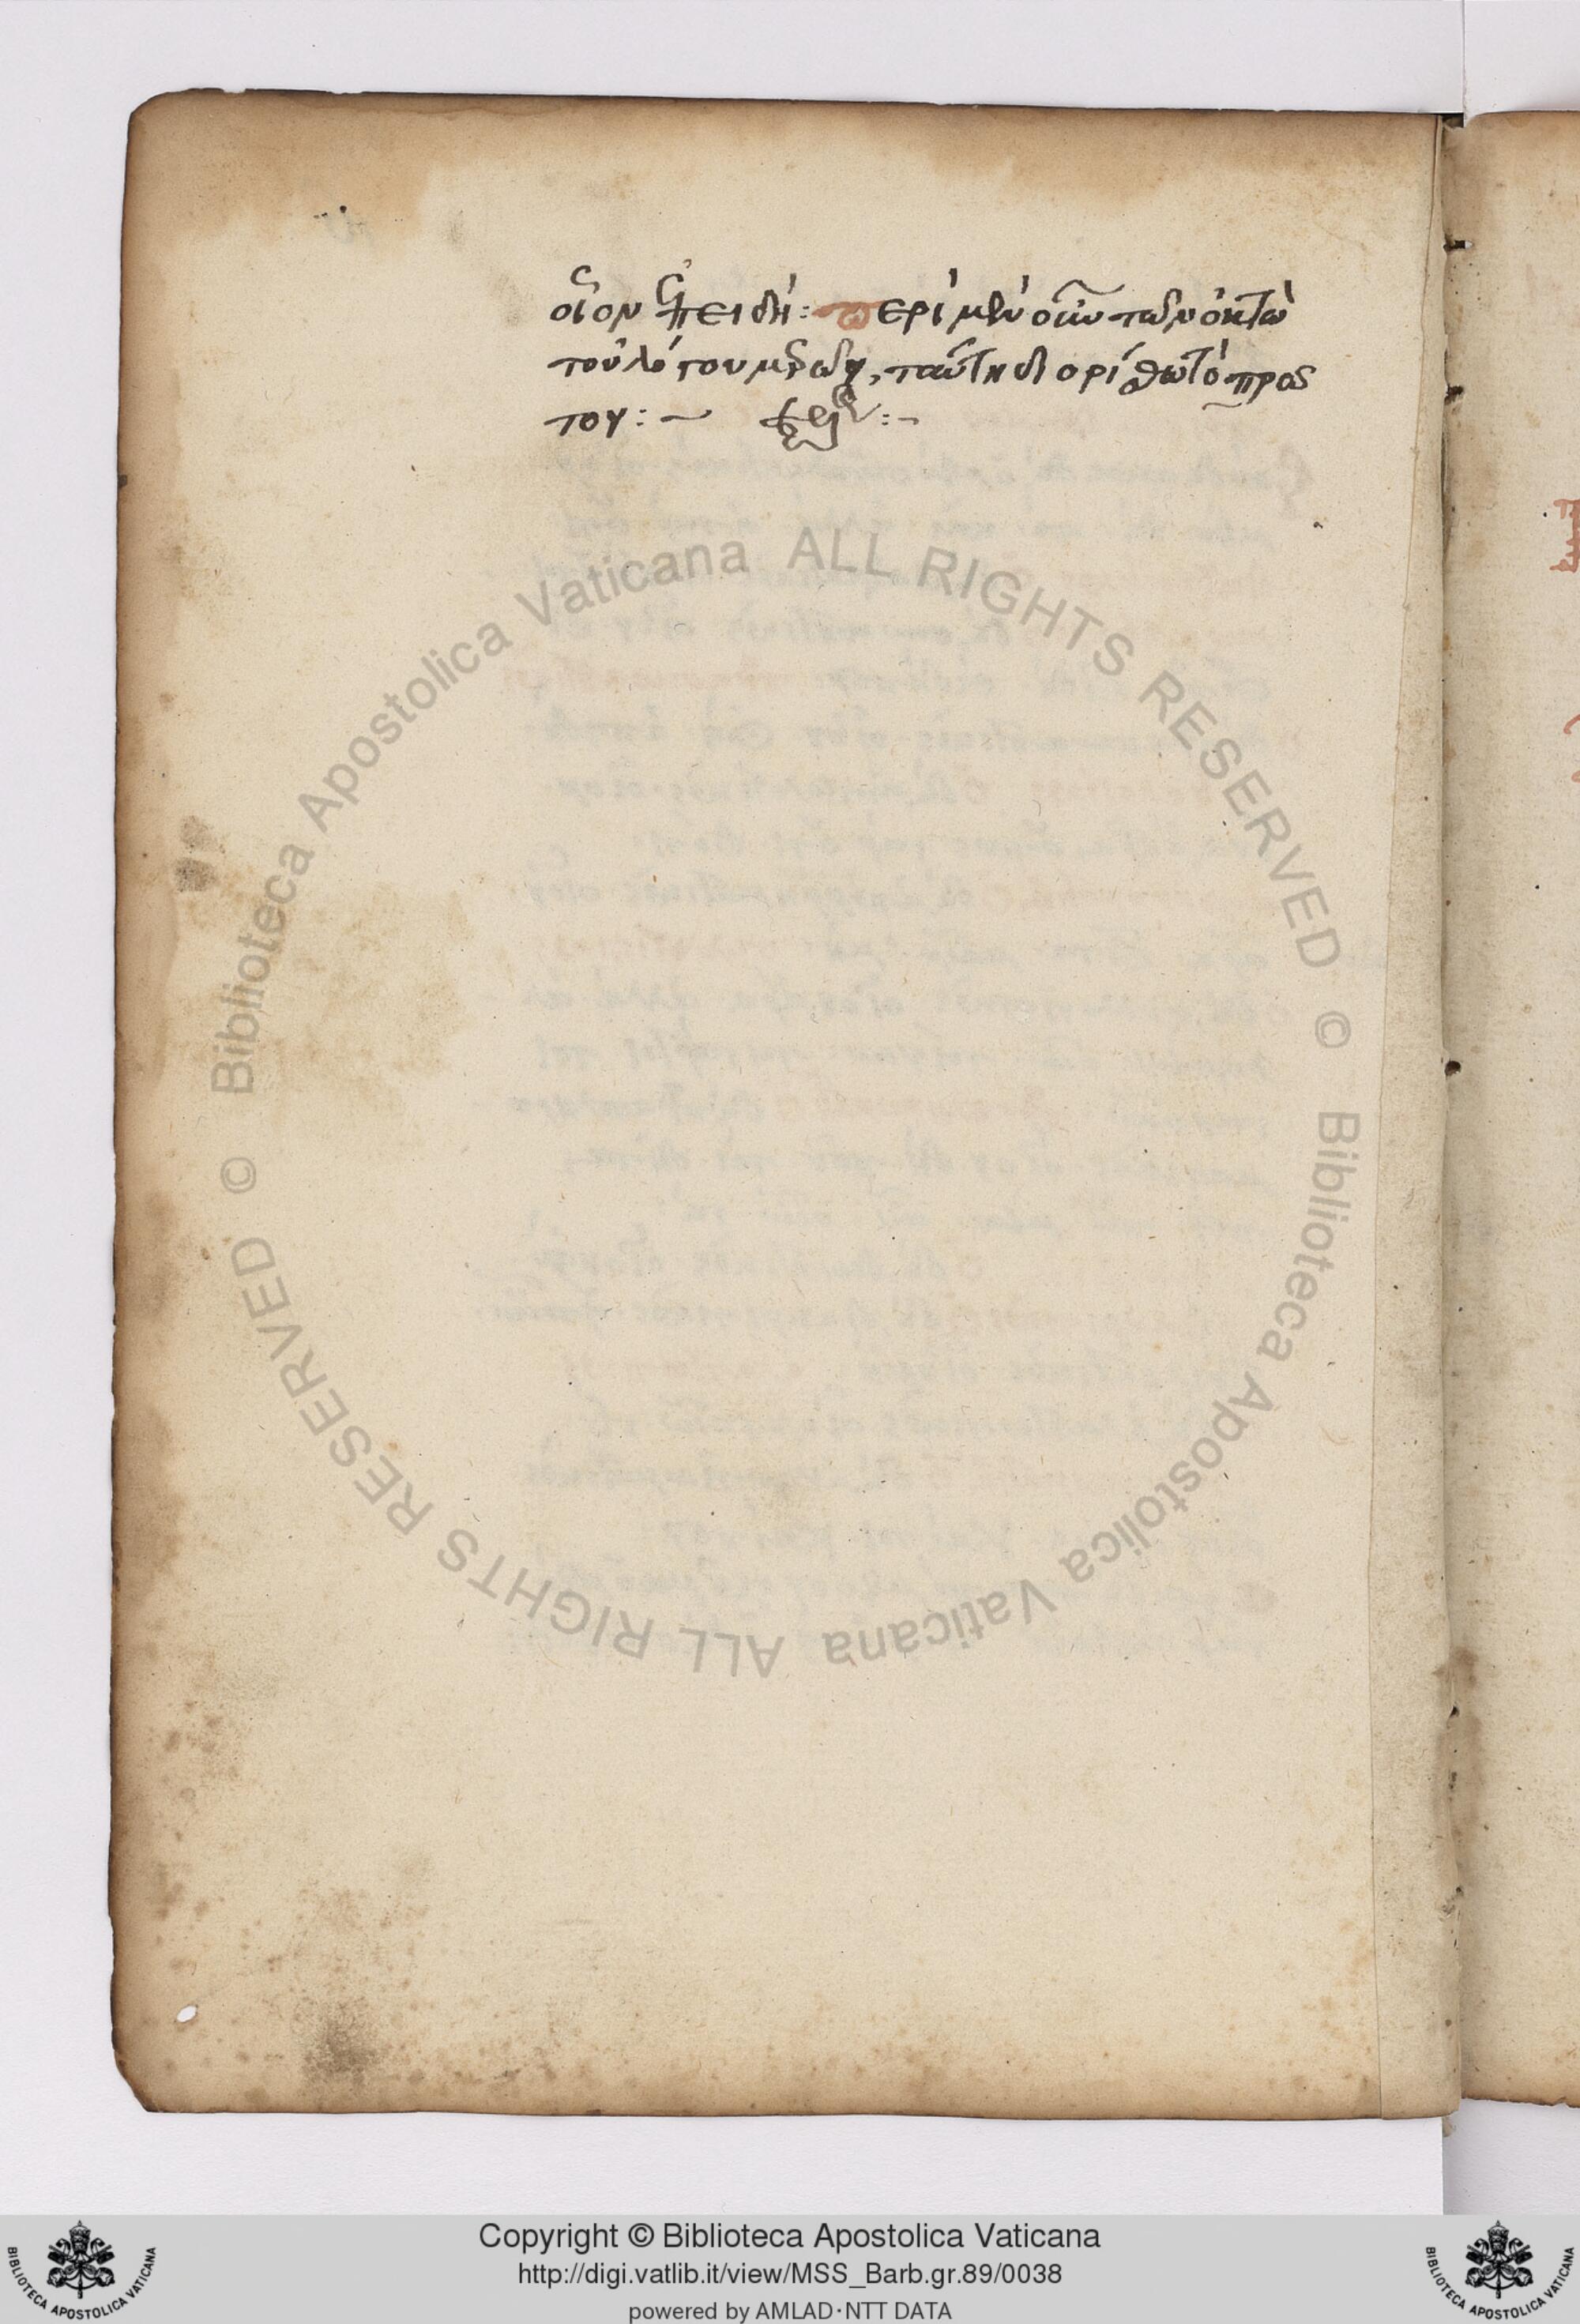 οἷον ἐπειδή: περὶ μὲν οὖν τῶν ὀκτὼ
τοῦ λόγου μερῶν, ταύτη διορίσθω τὸ πρὸς
του:~ :~
Biblioteca Apostolica Vaticana ALL RIGHTS RESERVED ©
Biblioteca Apostolica Vaticana ALL RIGHTS RESERVED ©
Copyright © Biblioteca Apostolica Vaticana
http://digi.vatlib.it/view/MSS_Barb.gr.89/0038
powered by AMLAD·NTT DATA
BIBLIOTECA APOSTOLICA VATICANA
BIBLIOTECA APOSTOLICA VATICANA